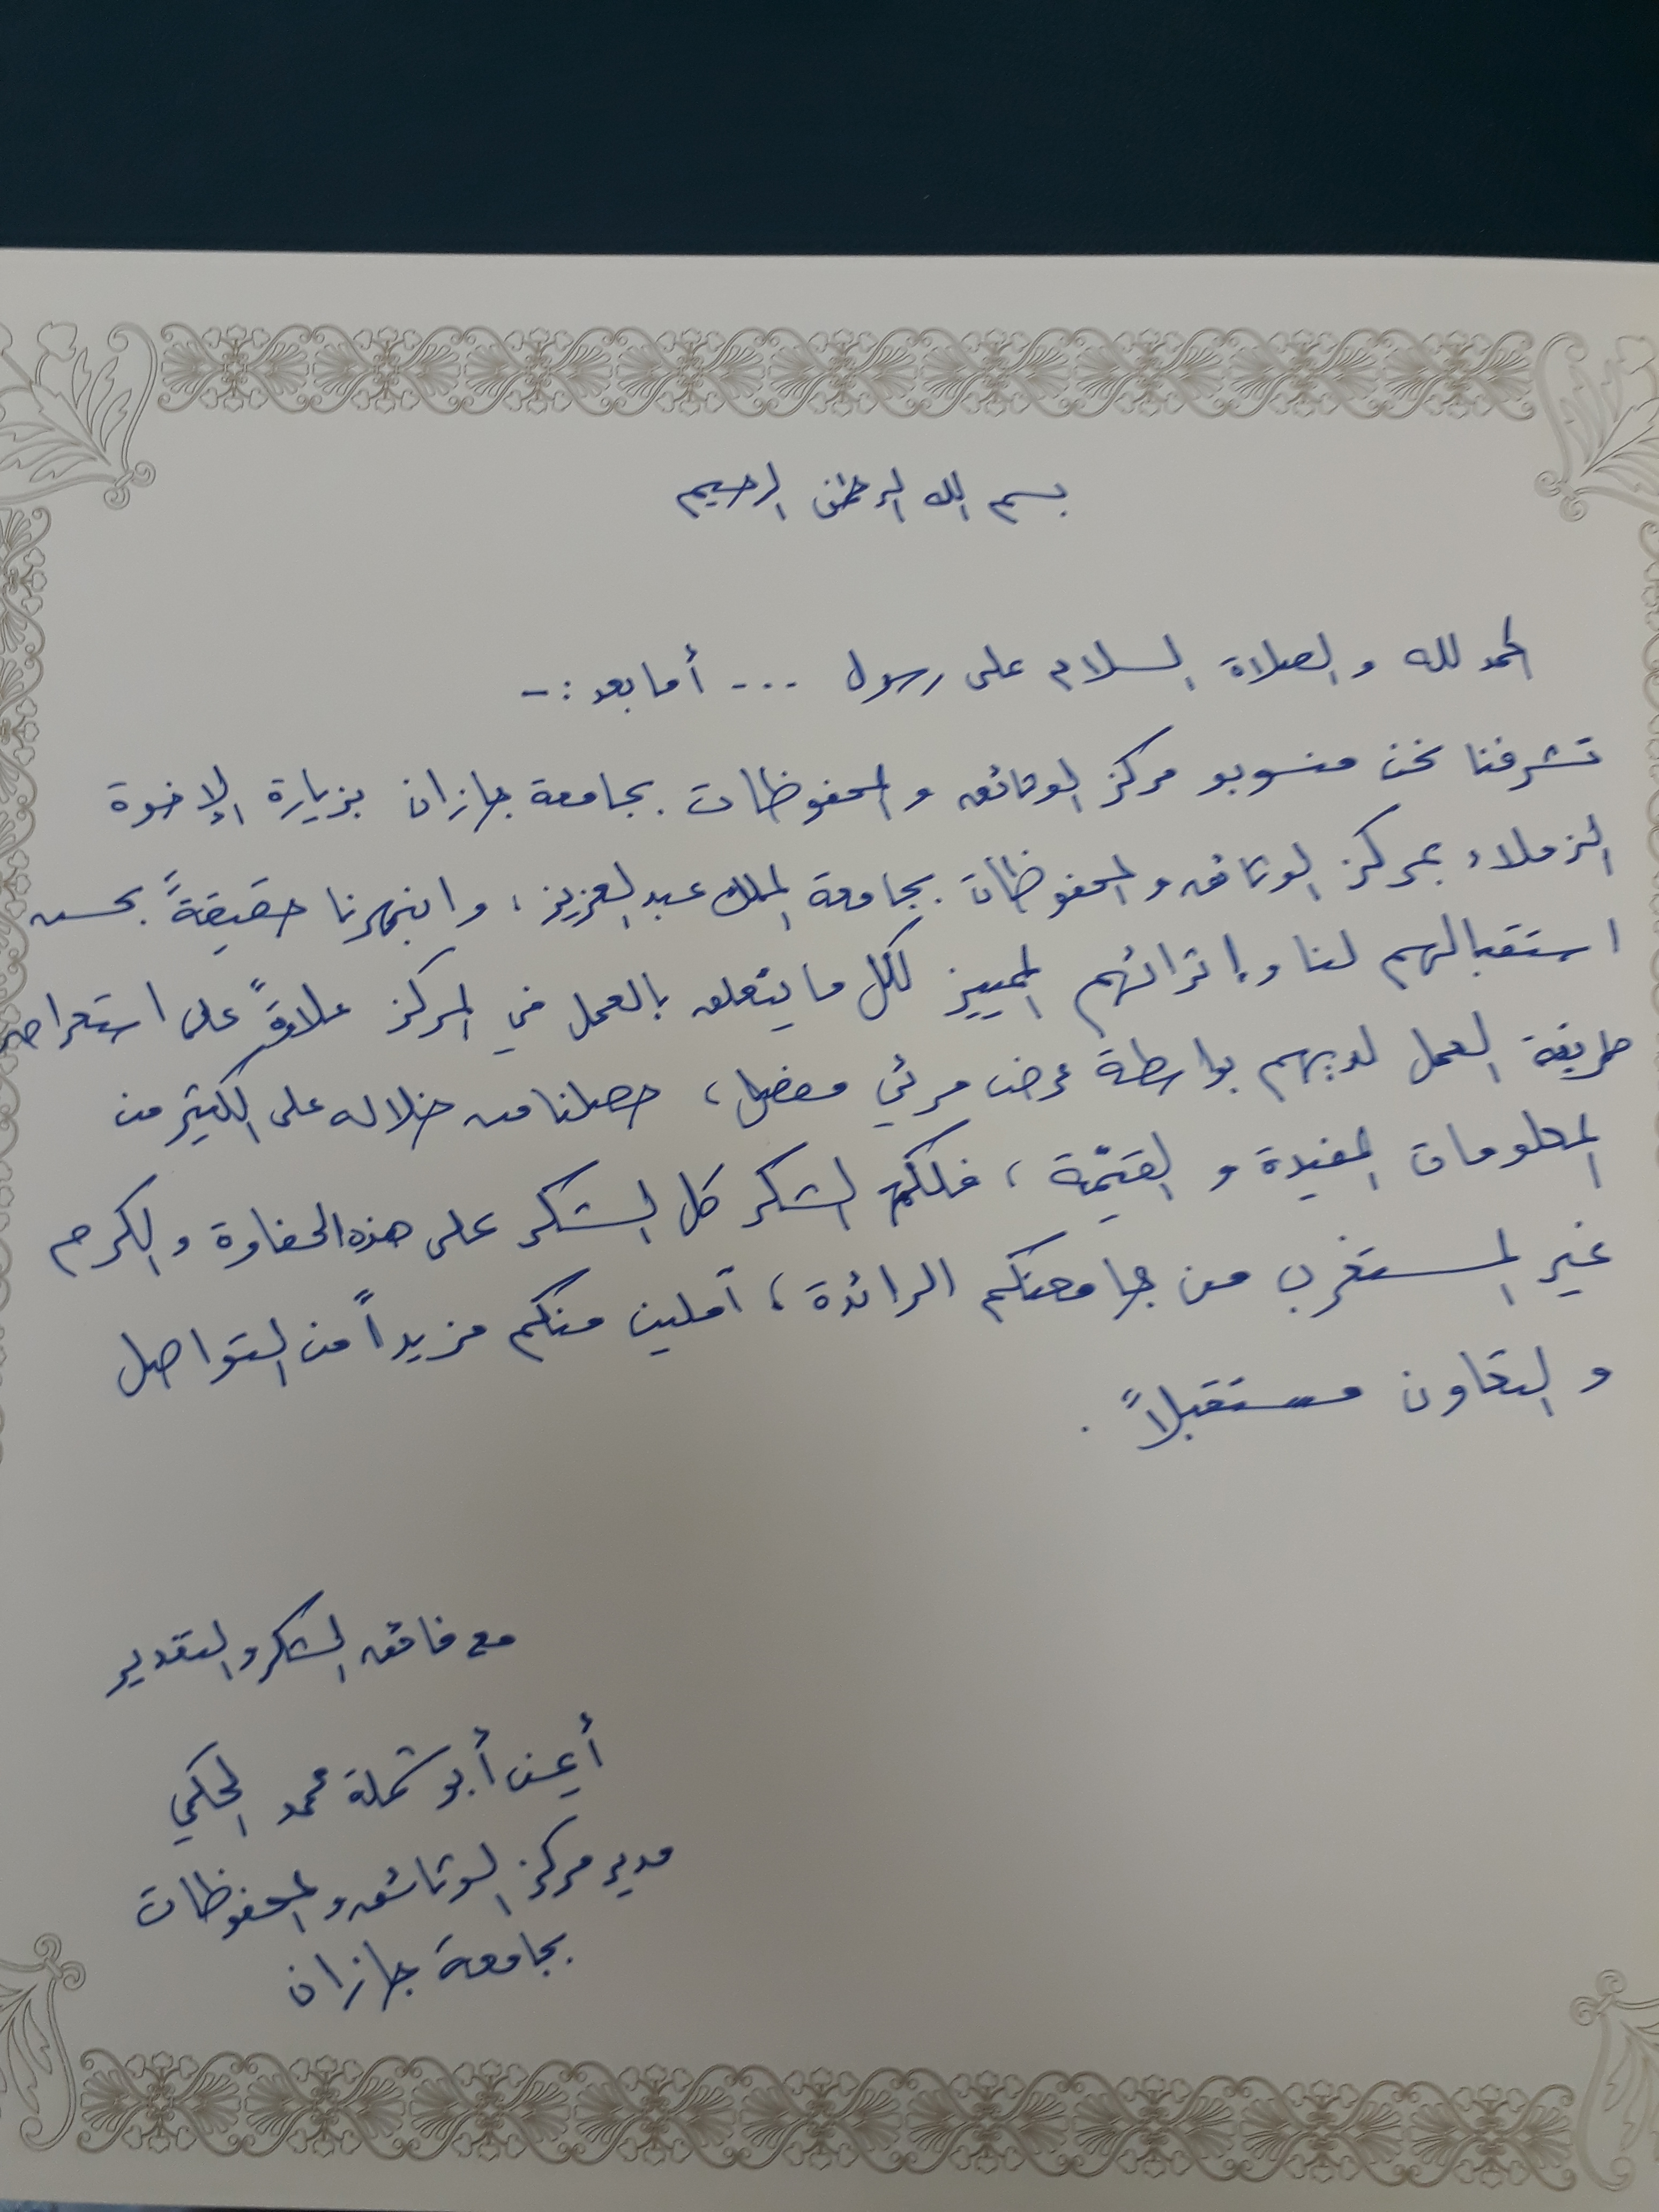 بسم الله الرحمن الرحيم
الحمد لله و الصلاة السلام على رسول ... أما بعد :-
تشرفنا نحن منسوبو مركز الوثائق و المحفوظات بجامعة جازان بزيارة الإخوة
الزملاء بمركز الوثائق و المحفوظات بجامعة الملك عبد العزيز ، و انبهرنا حقيقةً بحسن
استقبالهم لنا و إثرائهم المميز لكل ما يتعلق بالعمل في المركز علاوةً على استعراض
طريقة العمل لديهم بواسطة عرض مرئي مفصل ، حصلنا من خلاله على الكثير من
المعلومات المفيدة و القيّمة ، فلكم الشكر كل الشكر على هذه الحفاوة و الكرم
غير المستغرب من جامعتكم الرائدة ، آملين منكم مزيداً من التواصل
و التعاون مستقبلاً .
مع فائق الشكر و التقدير
أيمن أبو شملة محمد الحكمي
مدير مركز الوثائق و المحفوظات
بجامعة جازان